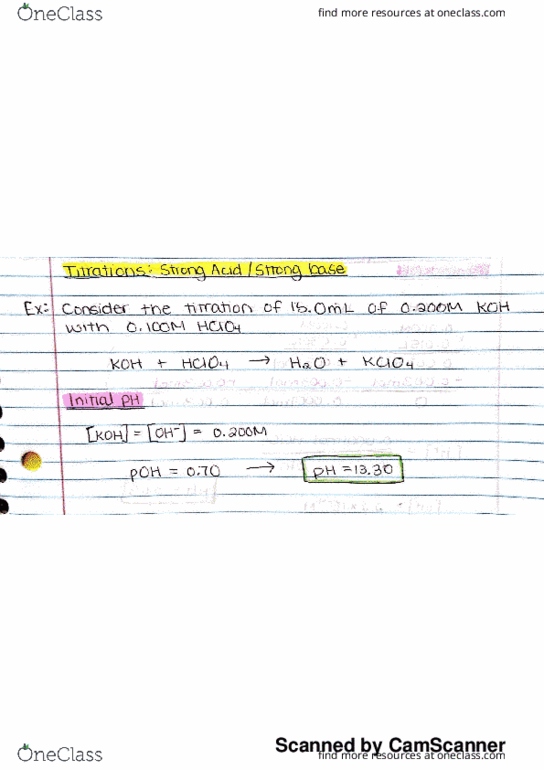 OneClass
find more resources at oneclass.com
Titrations: Strong Acid / Strong base
Ex: Consider the titration of 15.0mL of 0.200M KOH
with 0.100M HClO₄
KOH + HClO₄ → H₂O + KClO₄
Initial pH
[KOH] = [OH⁻] = 0.200M
pOH = 0.70 → pH = 13.30
Scanned by CamScanner
OneClass
find more resources at oneclass.com